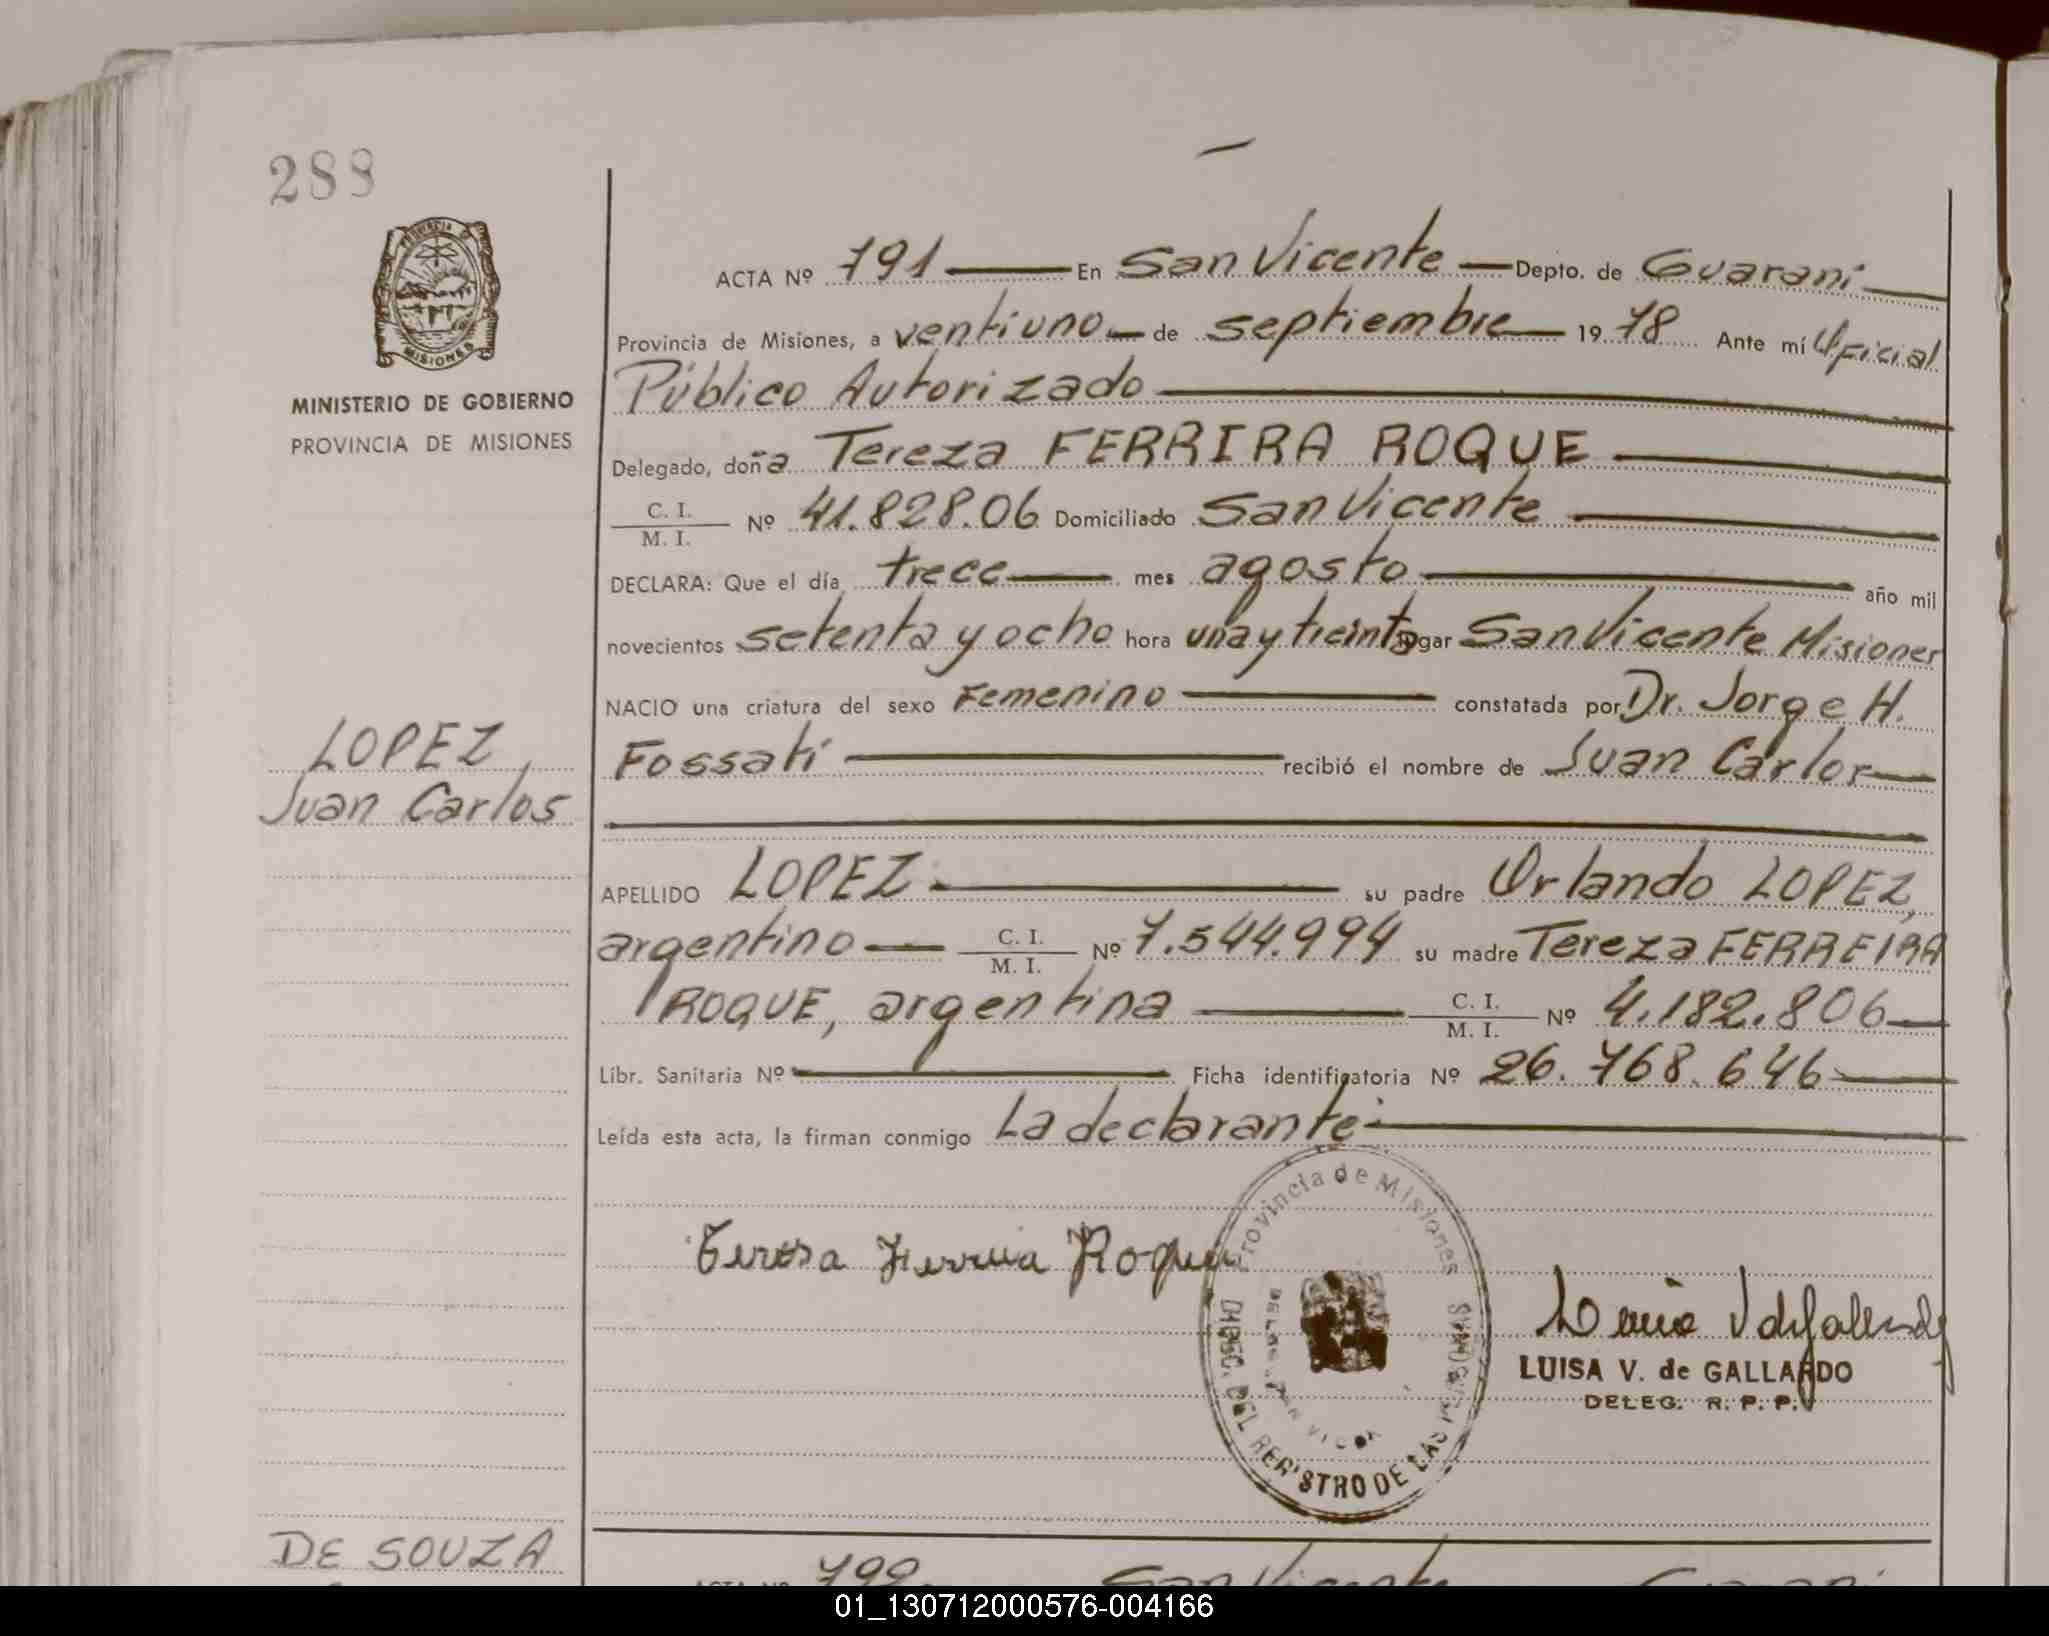 288
PROVINCIA DE
MISIONES
MINISTERIO DE GOBIERNO
PROVINCIA DE MISIONES
ACTA Nº 791 En San Vicente Depto. de Guarani
Provincia de Misiones, a ventiuno de septiembre 1978 Ante mí Oficial
Público Autorizado
Delegado, doña Tereza FERRIRA ROQUE
C. I.
M. I. Nº 41.828.06 Domiciliado San Vicente
DECLARA: Que el día trece mes agosto año mil
novecientos setenta y ocho hora una y treinta lugar San Vicente Misiones
NACIO una criatura del sexo Femenino constatada por Dr. Jorge H.
Fossati recibió el nombre de Juan Carlos
LOPEZ
Juan Carlos
APELLIDO LOPEZ su padre Orlando LOPEZ,
argentino C. I.
M. I. Nº 7.544.994 su madre Tereza FERREIRA
ROQUE, argentina C. I.
M. I. Nº 4.182.806
Libr. Sanitaria Nº Ficha identificatoria Nº 26.768.646
Leída esta acta, la firman conmigo La declarante
Provincia de Misiones
DEL REGISTRO DE LAS
Teresa Ferreira Roque
LUISA V. de GALLARDO
DELEG. R. P. P.
DE SOUZA
ACTA Nº 792 San Vicente Guarani
01_130712000576-004166